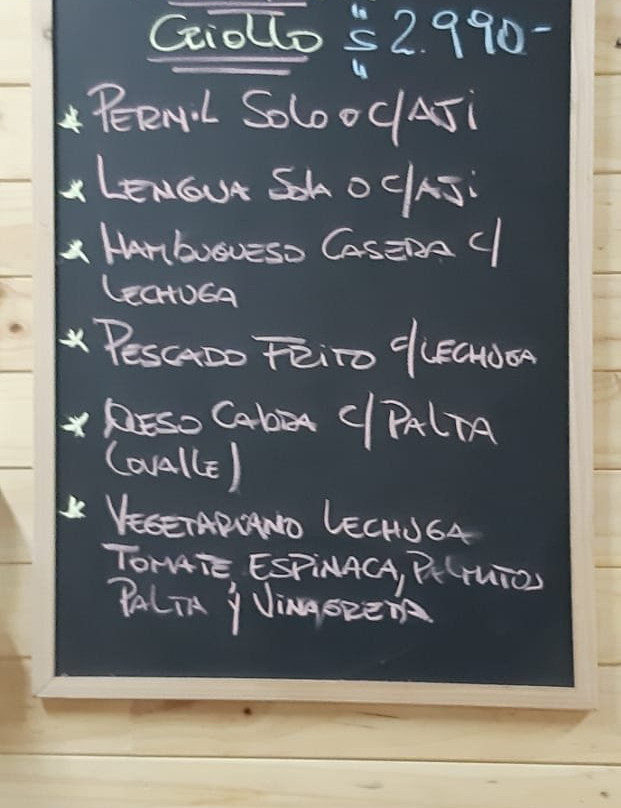 Criollo $ 2.990-
* PERNIL Solo o C/AJI
* LENGUA Sola O C/AJI
* HAMBUGUESO CASERA C/
LECHUGA
* PESCADO FRITO C/LECHUGA
* QESO CABRA C/ PALTA
(OVALLE)
* VEGETARIANO LECHUGA
TOMATE, ESPINACA, PALMITOS
PALTA y VINAGRETA